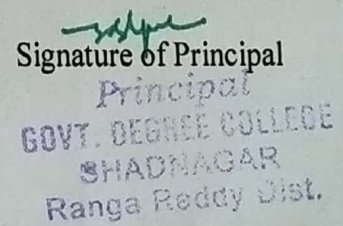 Signature of Principal
Principal
GOVT. DEGREE COLLEGE
SHADNAGAR
Ranga Reddy Dist.